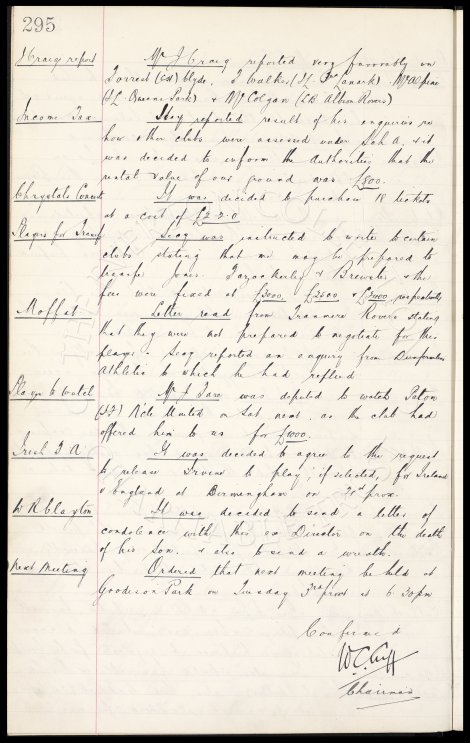 295
J Craig report
Mr J Craig reported very favorably on
Forrest (CH) Clyde, J Walker (I.L. 3rd Lanark)
(I L Queens Park) & McColgan (LB Albion Rovers)
Income Tax
Secy reported result of his enquiries re
how other clubs were assessed under Sch A, & it
was decided to inform the Authorities that the
rental value of our ground was £800.
Chrystals Concert
It was decided to purchase 18 tickets
at a cost of £2-7-0
Players for Transfer
Secy was instructed to write to certain
clubs stating that we may be prepared to
transfer Jones. Fazackerley & Brewster & the
fees were fixed at £3000, £2500 & respectively
Moffat
Letter read from Tranmere Rovers stating
that they were not prepared to negotiate for this
player & Secy reported an enquiry from Dunfermline
Athletic to which he had replied
Player to Watch
Mr J Fare was deputed to watch Paton
N'cle United on Sat next. as the club had
offered him to us for £1000.
Irish F A
It was decided to agree to the request
to release Irvine to play, if selected, for Ireland
v England at Birmingham on prox.
W R Clayton
It was decided to send a letter of
condolence with this ex Director on the death
of his son. & also to send a wreath.
Next Meeting
Ordered that next meeting be held at
Goodison Park on Tuesday 3rd prox at 6.30pm
Confirmed
W.C. Cuff
Chairman